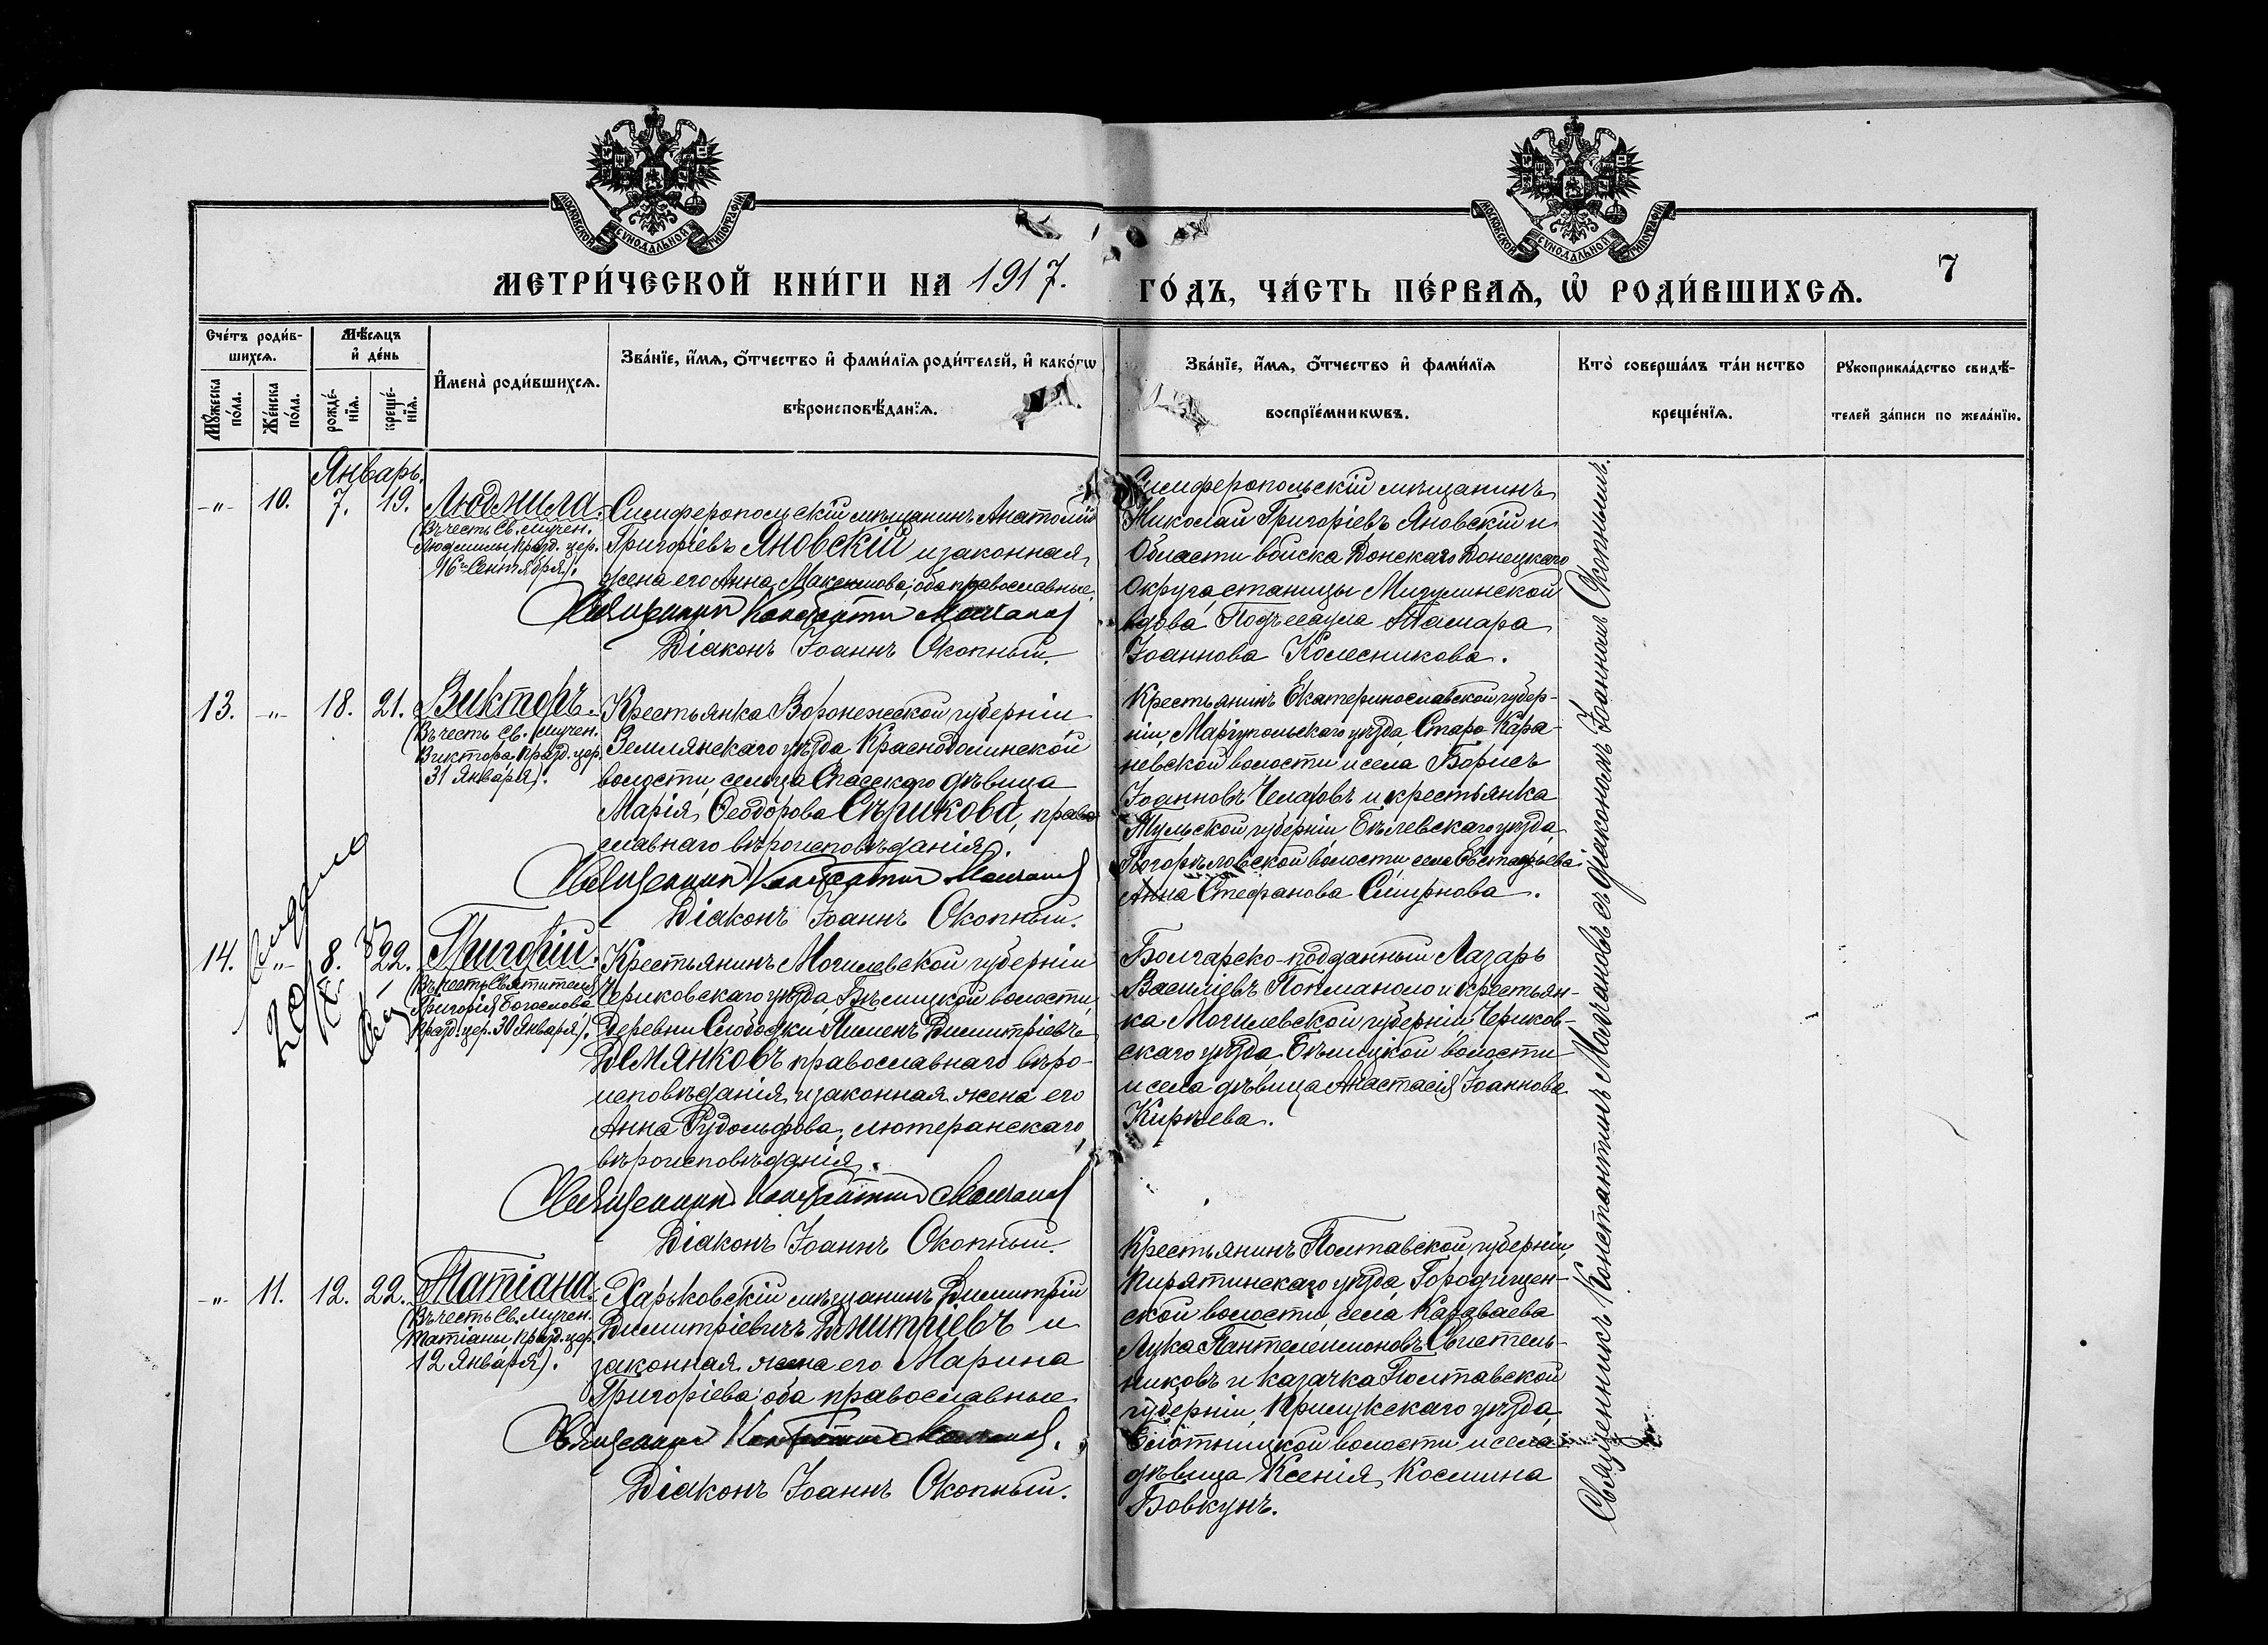 МОСКОВСКОЙ СѴНОДАЛЬНОЙ ТИПОГРАФІИ
МОСКОВСКОЙ СѴНОДАЛЬНОЙ ТИПОГРАФІИ
МЕТРИ́ЧЕСКОЙ КНИ́ГИ НА 1917.
ГО́ДЪ, ЧА́СТЬ ПЕ́РВАѦ, Ѡ҆ РОДИ́ВШИХСѦ.
7
Сче́тъ роди́в-
шихсѧ.
Мꙋ́жеска по́ла.
Же́нска по́ла.
Мѣ́сѧцъ
и҆ де́нь
рожде́-
нїѧ.
креще́-
нїѧ.
И҆мена̀ роди́вшихсѧ.
Зва́нїе, и҆́мѧ, ѻ҆́тчество и҆ фами́лїѧ роди́телей, и҆ како́гѡ
вѣроисповѣ́данїѧ.
Зва́нїе, и҆́мѧ, ѻ҆́тчество и҆ фами́лїѧ
воспрїе́мникѡвъ.
Кто̀ соверша́лъ та́инство
креще́нїѧ.
Рꙋкоприкла́дство свидѣ́-
телей за́писи по жела́нїю.
Январь.
-„- 10. 7. 19.
Людмила.
(Въ честь Св. Мучен.
Людмилы, празд. цер.
16го Сентября).
Симферопольскій мѣщанинъ Анатолій
Григоріевъ Яновскій и законная
жена его Анна Максимова, оба православные.
Священникъ Константинъ Молчановъ
Діаконъ Іоаннъ Окопный.
Симферопольскій мѣщанинъ
Николай Григоріевъ Яновскій и
Области войска Донскаго Донецкаго
Округа, станицы Мигулинской
вдова Подъесаула Тамара
Іоаннова Колесникова.
13. -„- 18. 21.
Викторъ.
(Въ честь Св. Мучен.
Виктора, празд. цер.
31 Января).
Крестьянка Воронежской губерніи
Землянскаго уѣзда Краснодолинской
волости, сельца Спасскаго дѣвица
Марія Ѳеодорова Сѣрикова, право
славнаго вѣроисповѣданія.
Священникъ Константинъ Молчановъ
Діаконъ Іоаннъ Окопный.
Крестьянинъ Екатеринославской губер-
ніи, Маріупольскаго уѣзда, Старо-Кара-
невской волости и села Борисъ
Іоанновъ и крестьянка
Тульской губерніи, Бѣлевскаго уѣзда,
волости, села
Анна Стефанова Смирнова.
14. -„- 8. 22.
Выдано
Григорій.
(Въ честь Святителя
Григорія Богослова,
празд. цер. 30 Января).
Крестьянинъ Могилевской губерніи
Чериковскаго уѣзда, Бѣлицкой волости,
Деревни Слободки Пименъ Димитріевъ
Демянковъ православнаго вѣро-
исповѣданія, и законная жена его
Анна Рудольфова, лютеранскаго
вѣроисповѣданія.
Священникъ Константинъ Молчановъ
Діаконъ Іоаннъ Окопный.
Болгарско-подданный Лазарь
Василіевъ Попманоло и крестьян-
ка Могилевской губерніи, Чериков-
скаго уѣзда, Бѣлицкой волости
и села дѣвица Анастасія Іоаннова
Кирѣева.
-„- 11. 12. 22.
Татіана.
(Въ честь Св. Мучен.
Татіаны, празд. цер.
12 Января).
Харьковскій мѣщанинъ Димитрій
Димитріевичъ Димитріевъ и
законная жена его Марина
Григоріева, оба православные
Священникъ Константинъ Молчановъ.
Діаконъ Іоаннъ Окопный.
Крестьянинъ Полтавской губерніи,
Пирятинскаго уѣзда, Городищен-
ской волости, села
Лука Пантелеимоновъ Свѣтель-
никовъ и казачка Полтавской
губерніи, Прилукскаго уѣзда,
волости и села
дѣвица Ксенія Космина
Бовкунъ.
Священникъ Константинъ Молчановъ съ діакономъ Іоанномъ Окопнымъ.